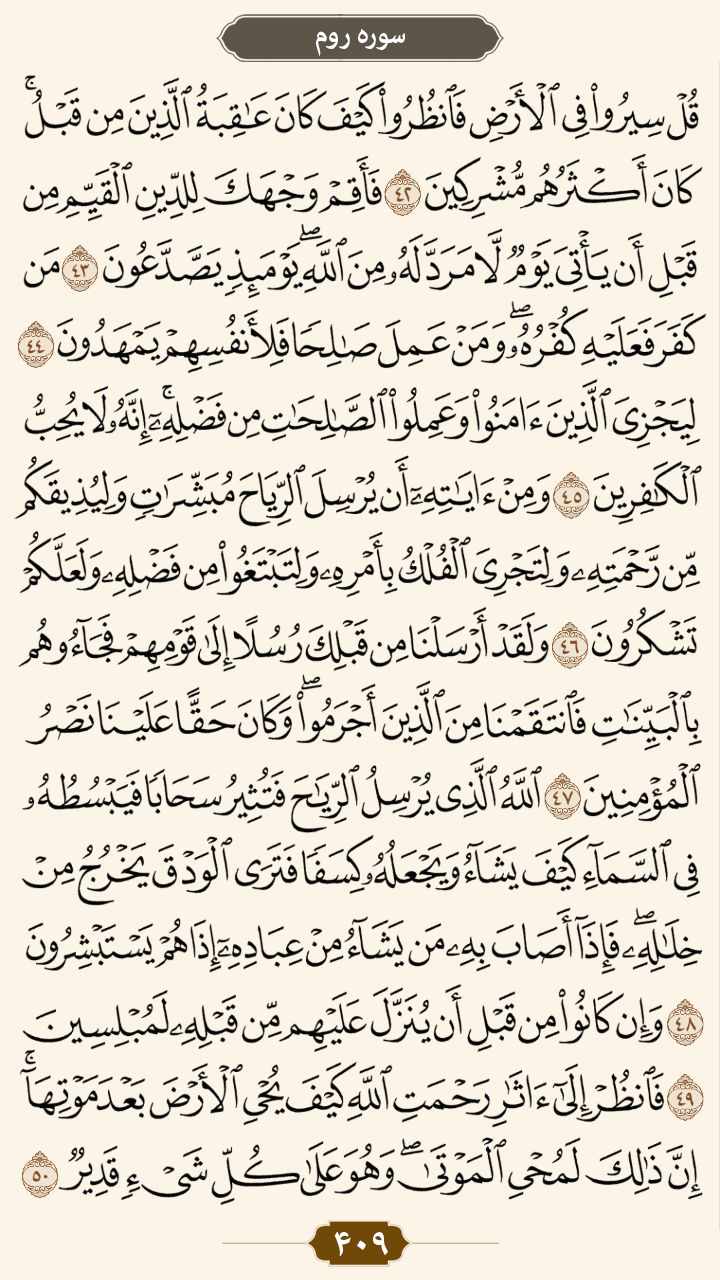 سوره روم
قُلۡ سِيرُواْ فِي ٱلۡأَرۡضِ فَٱنظُرُواْ كَيۡفَ كَانَ عَٰقِبَةُ ٱلَّذِينَ مِن قَبۡلُۚ
كَانَ أَكۡثَرُهُم مُّشۡرِكِينَ ٤٢ فَأَقِمۡ وَجۡهَكَ لِلدِّينِ ٱلۡقَيِّمِ مِن
قَبۡلِ أَن يَأۡتِيَ يَوۡمٞ لَّا مَرَدَّ لَهُۥ مِنَ ٱللَّهِۖ يَوۡمَئِذٖ يَصَّدَّعُونَ ٤٣ مَن
كَفَرَ فَعَلَيۡهِ كُفۡرُهُۥۖ وَمَنۡ عَمِلَ صَٰلِحٗا فَلِأَنفُسِهِمۡ يَمۡهَدُونَ ٤٤
لِيَجۡزِيَ ٱلَّذِينَ ءَامَنُواْ وَعَمِلُواْ ٱلصَّٰلِحَٰتِ مِن فَضۡلِهِۦٓۚ إِنَّهُۥ لَا يُحِبُّ
ٱلۡكَٰفِرِينَ ٤٥ وَمِنۡ ءَايَٰتِهِۦٓ أَن يُرۡسِلَ ٱلرِّيَاحَ مُبَشِّرَٰتٖ وَلِيُذِيقَكُم
مِّن رَّحۡمَتِهِۦ وَلِتَجۡرِيَ ٱلۡفُلۡكُ بِأَمۡرِهِۦ وَلِتَبۡتَغُواْ مِن فَضۡلِهِۦ وَلَعَلَّكُمۡ
تَشۡكُرُونَ ٤٦ وَلَقَدۡ أَرۡسَلۡنَا مِن قَبۡلِكَ رُسُلًا إِلَىٰ قَوۡمِهِمۡ فَجَآءُوهُم
بِٱلۡبَيِّنَٰتِ فَٱنتَقَمۡنَا مِنَ ٱلَّذِينَ أَجۡرَمُواْۖ وَكَانَ حَقًّا عَلَيۡنَا نَصۡرُ
ٱلۡمُؤۡمِنِينَ ٤٧ ٱللَّهُ ٱلَّذِي يُرۡسِلُ ٱلرِّيَٰحَ فَتُثِيرُ سَحَابٗا فَيَبۡسُطُهُۥ
فِي ٱلسَّمَآءِ كَيۡفَ يَشَآءُ وَيَجۡعَلُهُۥ كِسَفٗا فَتَرَى ٱلۡوَدۡقَ يَخۡرُجُ مِنۡ
خِلَٰلِهِۦۖ فَإِذَآ أَصَابَ بِهِۦ مَن يَشَآءُ مِنۡ عِبَادِهِۦٓ إِذَا هُمۡ يَسۡتَبۡشِرُونَ
٤٨ وَإِن كَانُواْ مِن قَبۡلِ أَن يُنَزَّلَ عَلَيۡهِم مِّن قَبۡلِهِۦ لَمُبۡلِسِينَ
٤٩ فَٱنظُرۡ إِلَىٰٓ ءَاثَٰرِ رَحۡمَتِ ٱللَّهِ كَيۡفَ يُحۡيِ ٱلۡأَرۡضَ بَعۡدَ مَوۡتِهَآۚ
إِنَّ ذَٰلِكَ لَمُحۡيِ ٱلۡمَوۡتَىٰۖ وَهُوَ عَلَىٰ كُلِّ شَيۡءٖ قَدِيرٞ ٥٠
۴۰۹